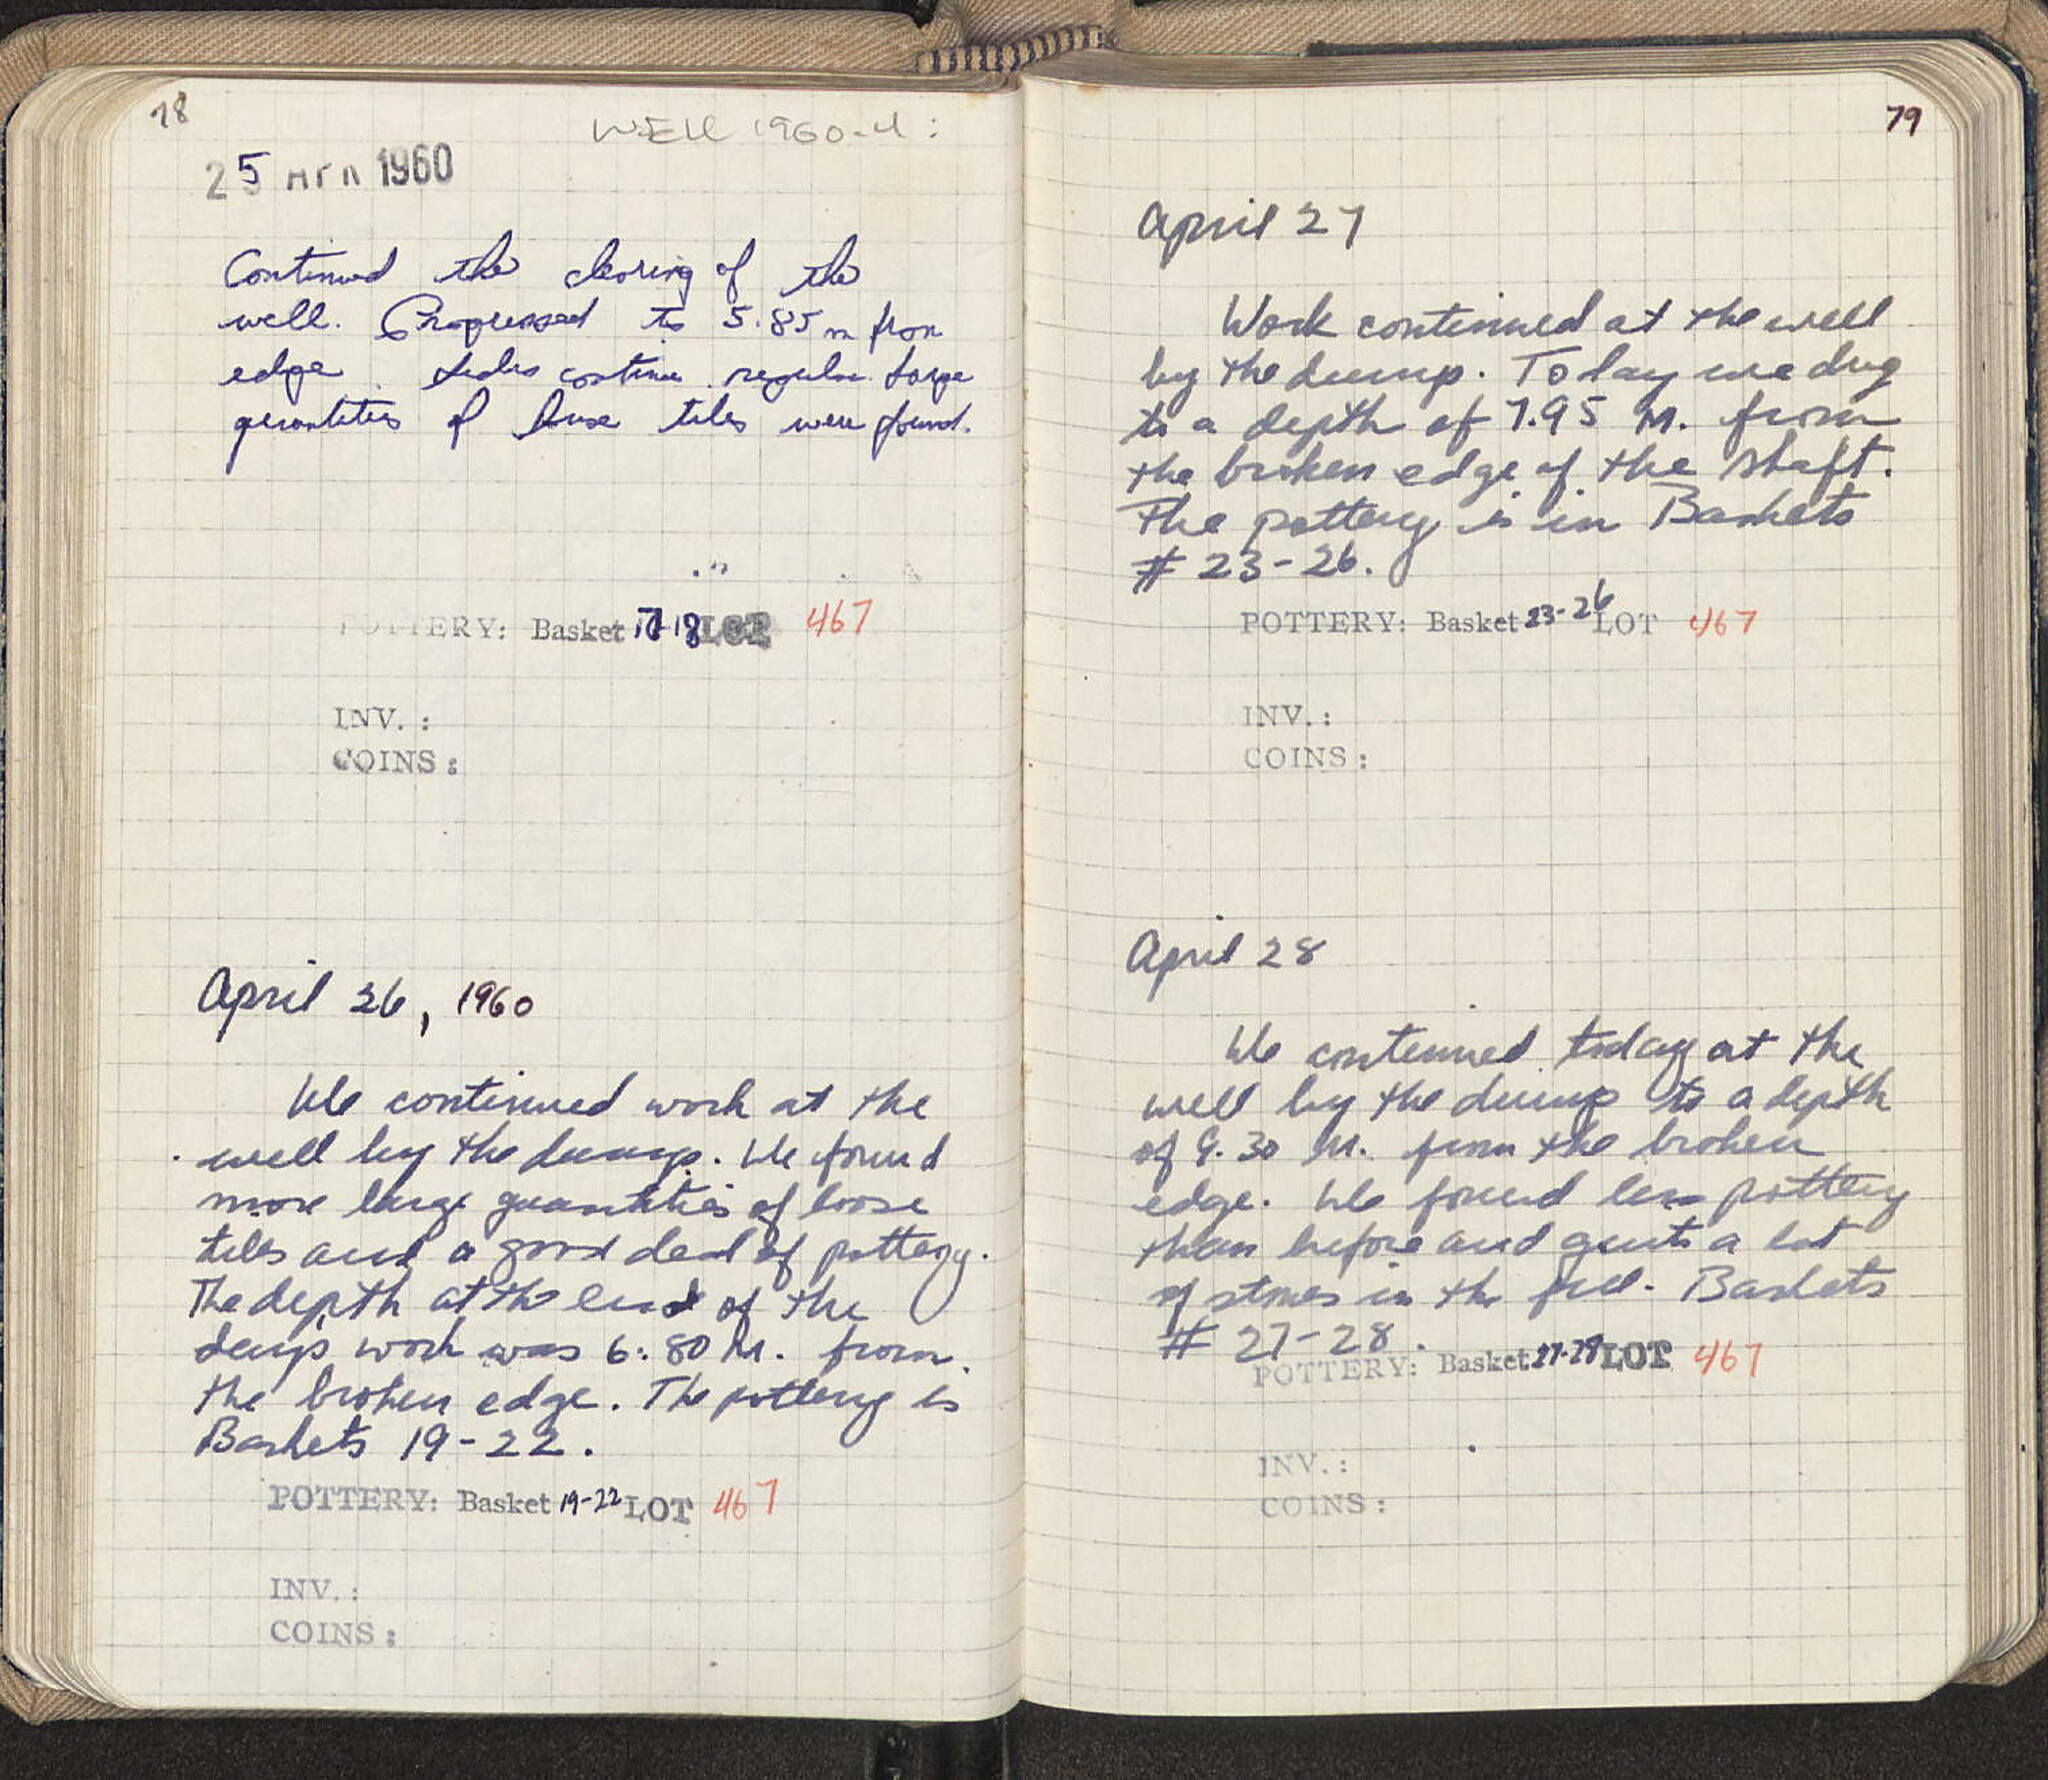 78
WELL 1960-4:
25 ΑΠΡ 1960
Continued the clearing of the
well. Progressed to 5.85 m from
edge. Sides continue regular. Large
quantities of loose tiles were found.
POTTERY: Basket 17-18 LOT 467
INV. :
COINS :
April 26, 1960
We continued work at the
well by the dump. We found
more large quantities of loose
tiles and a good deal of pottery.
The depth at the end of the
day's work was 6.80 M. from
the broken edge. The pottery is
Baskets 19-22.
POTTERY: Basket 19-22 LOT 467
INV. :
COINS :
79
April 27
Work continued at the well
by the dump. Today we dug
to a depth of 7.95 M. from
the broken edge of the shaft.
The pottery is in Baskets
# 23-26.
POTTERY: Basket 23-26 LOT 467
INV. :
COINS :
April 28
We continued today at the
well by the dump to a depth
of 9.30 M. from the broken
edge. We found less pottery
than before and quite a lot
of stones in the fill. Baskets
# 27-28.
POTTERY: Basket 27-28 LOT 467
INV. :
COINS :